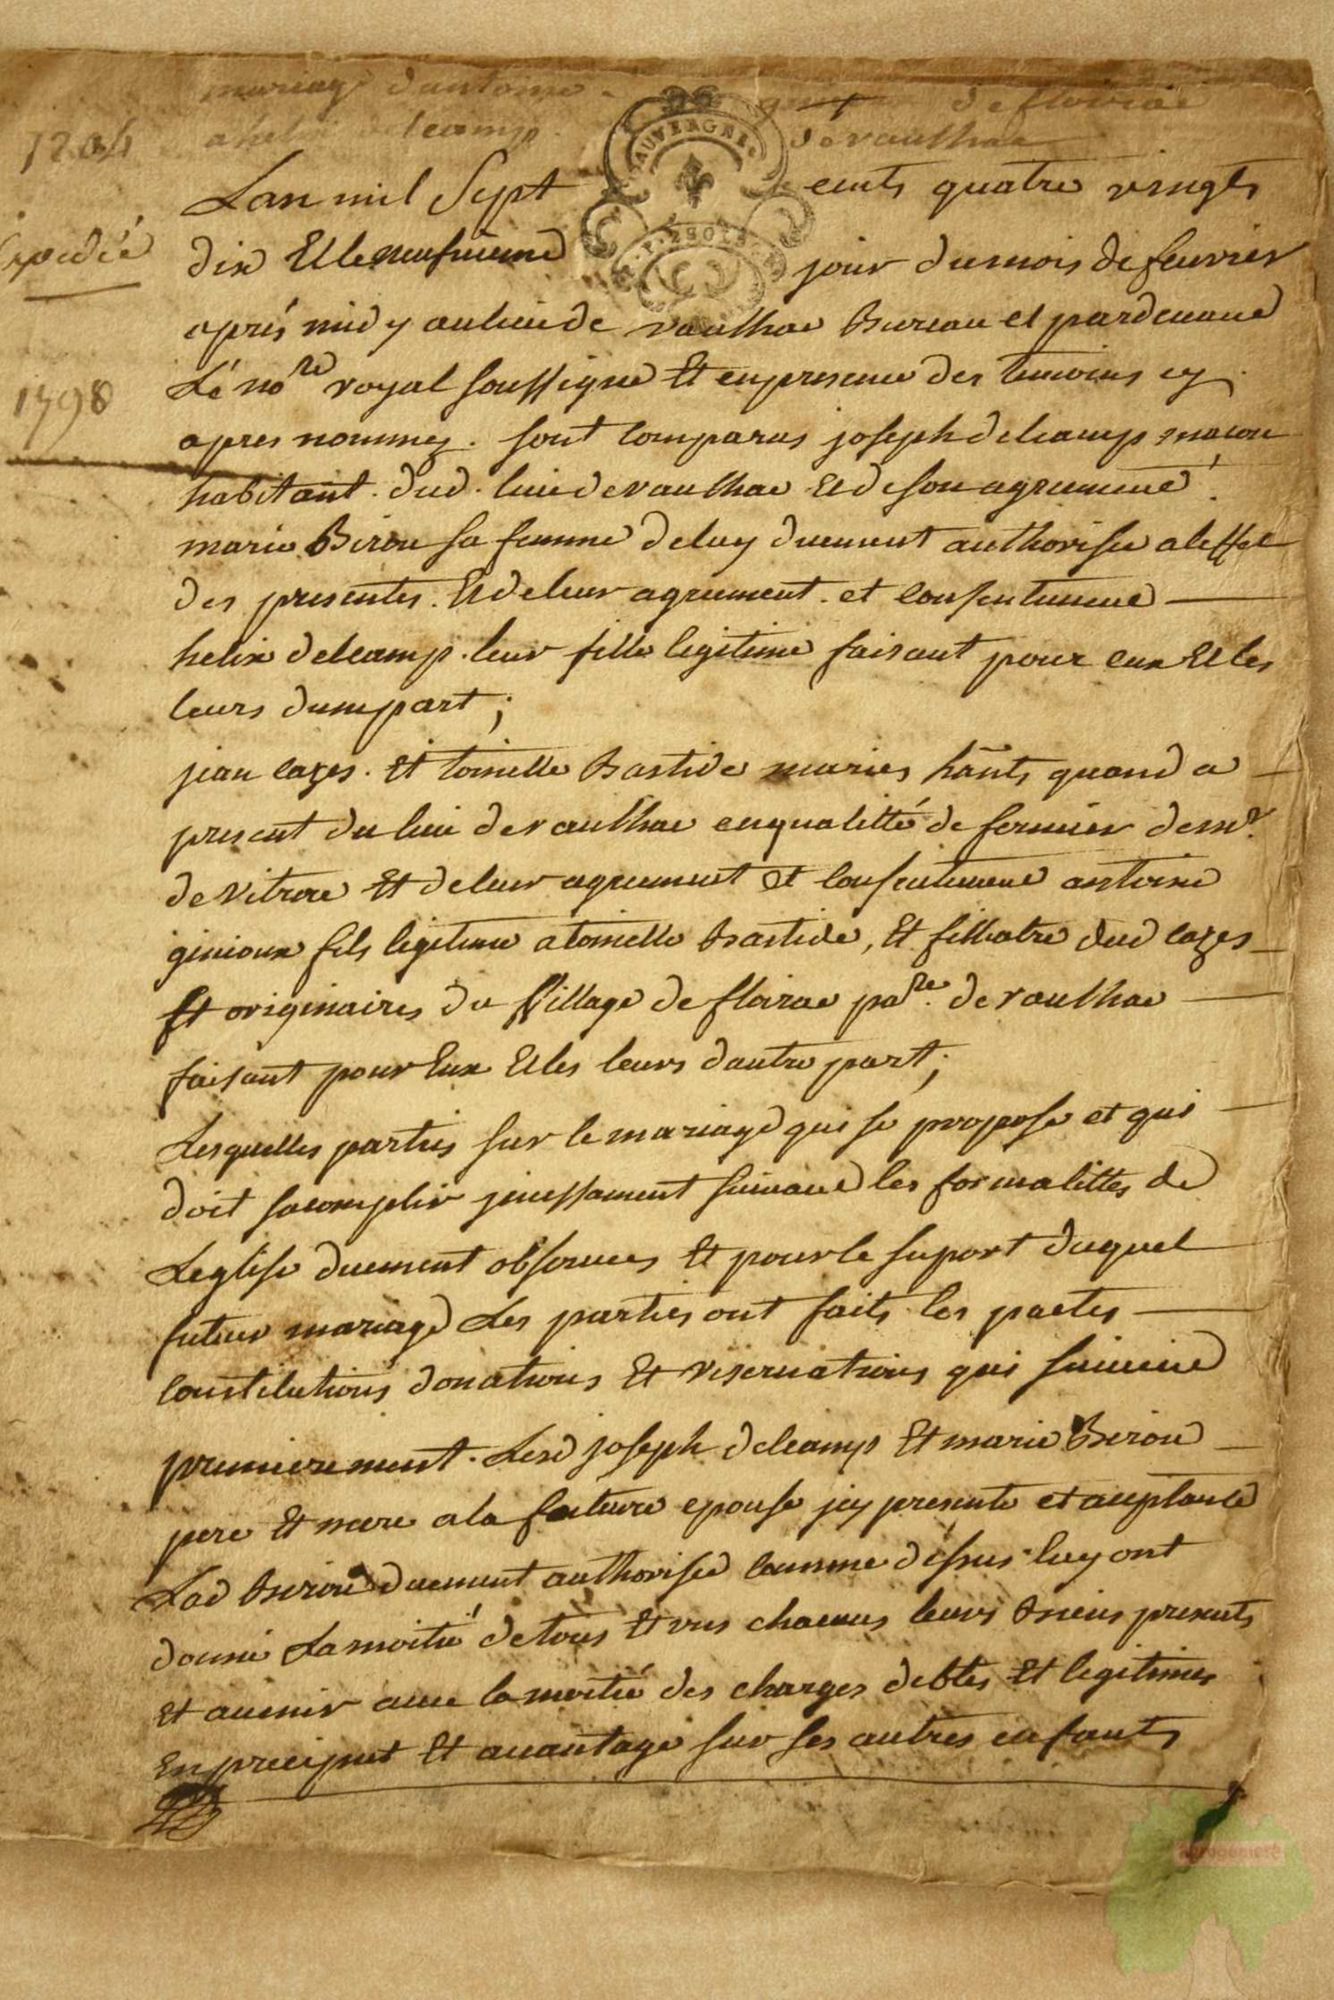 mariage d'antoine de floirac
a helix delcamp de raulhac
1204
AUVERGNE
Lan mil Sept cents quatre vingts
dix Et le neufvieme jour du mois de feuvrier
expediée
aprés midy au lieu de raulhac Bureau et pardevant
Lé no.re royal soussigné Et en presence des temoins cy
1798
apres nommez. sont comparus joseph delcamp macon
habitant. dud. lieu de raulhac Et de son agrement
marie Birou sa femme de luy duement authorisée a leffet
des presentes. Et de leur agrement. et consentement
helix delcamp. leur fille legitime faisant pour eux Et les
leurs dune part;
jean cazes. Et toinette Bastide mariés hants quand a
present du lieu de raulhac en qualitté de fermier de mr.
de vitrac Et de leur agrement et consentement antoine
ginioux fils legitime a toinette Bastide, Et filliatre dud cazes
Et originaires du Village de floirac pa.re de raulhac
faisant pour Eux Et les leurs dautre part;
Lesquelles parties sur le mariage qui se propose et qui
doit sacomplir jncessament suivant les formalittés de
Leglise duement observées Et pour le suport duquel
futeur mariage Les parties ont faits les pactes
Constitutions donations Et reservations qui suivent
premierement. Lesd joseph delcamp Et marie Birou
pere Et mere a la future epouse jcy presente et aceptante
Lad Birou duement authorisée comme dessus luy ont
donné La moitié de tous Et uns chacuns leurs Biens presents
Et avenir avec la moitié des charges debtes Et legitimes
En preciput Et avantage sur ses autres enfants